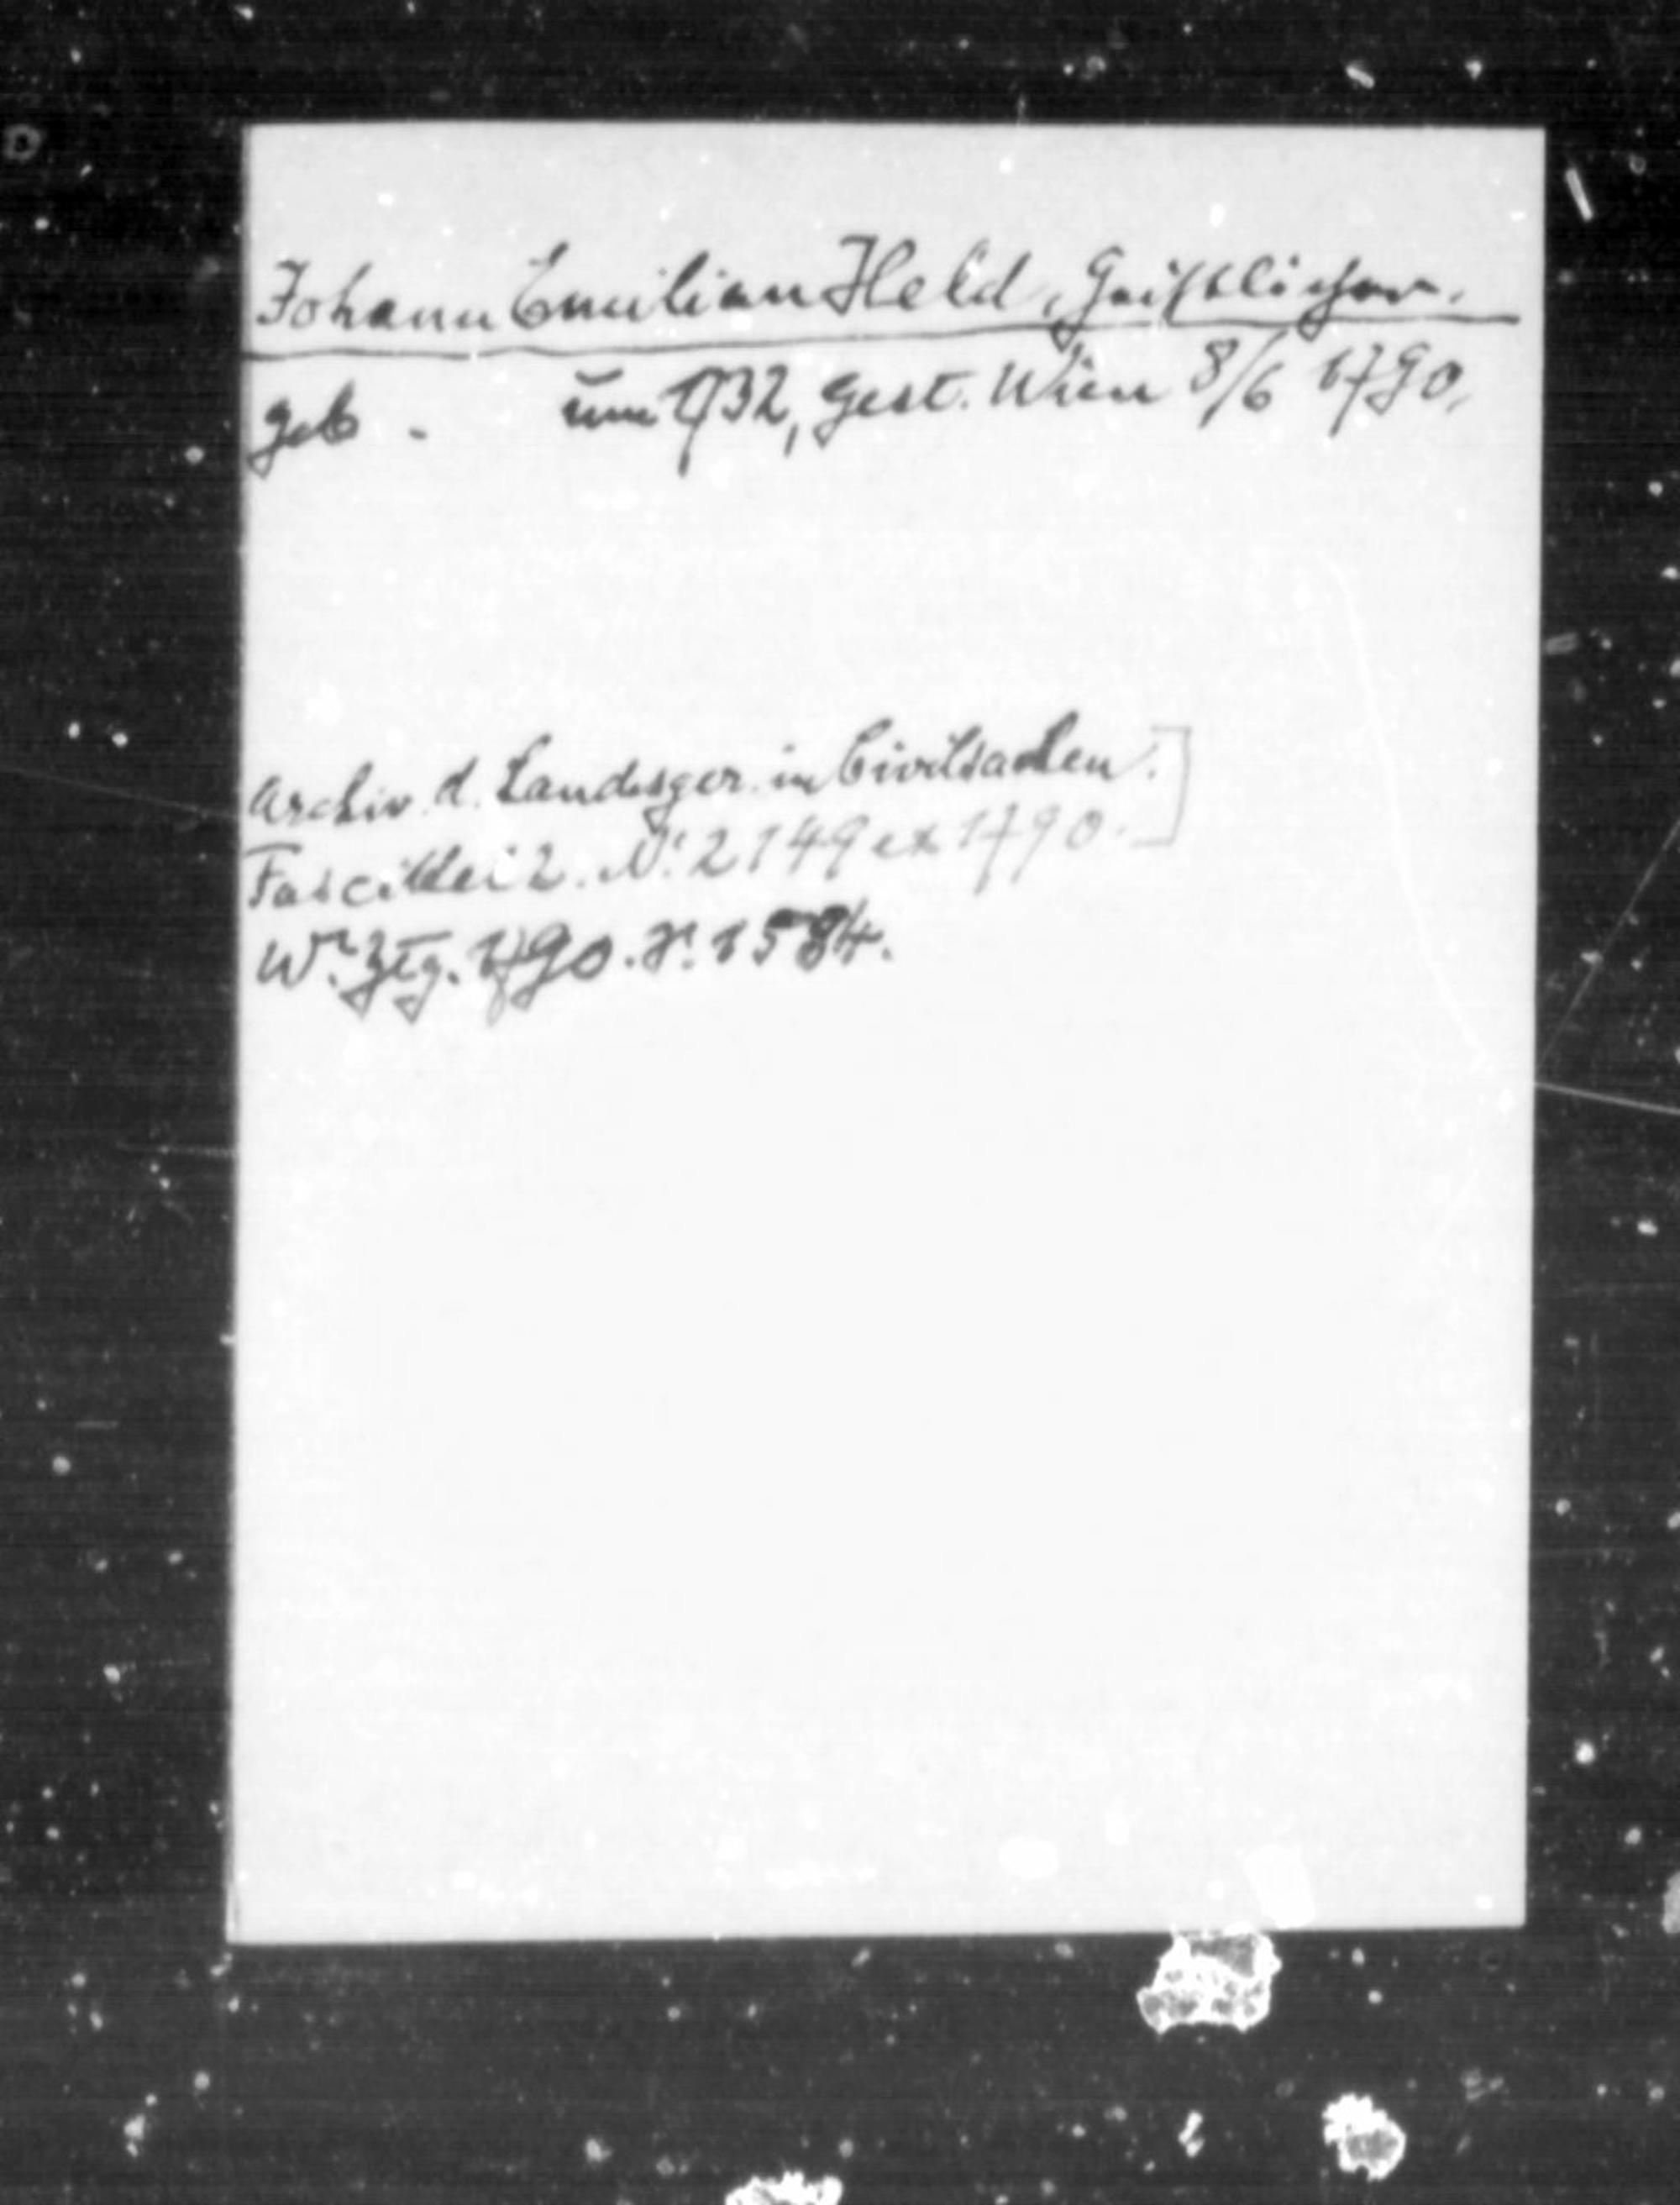 Johann Emilian Held, Geistlicher.
geb. um 1732, gest. Wien 8/6 1790.
Archiv d. Landesger. in Civilsachen.]
Fascikel 2. Nr. 2149 ex 1790.
Wr. Ztg. 1790. S. 1584.